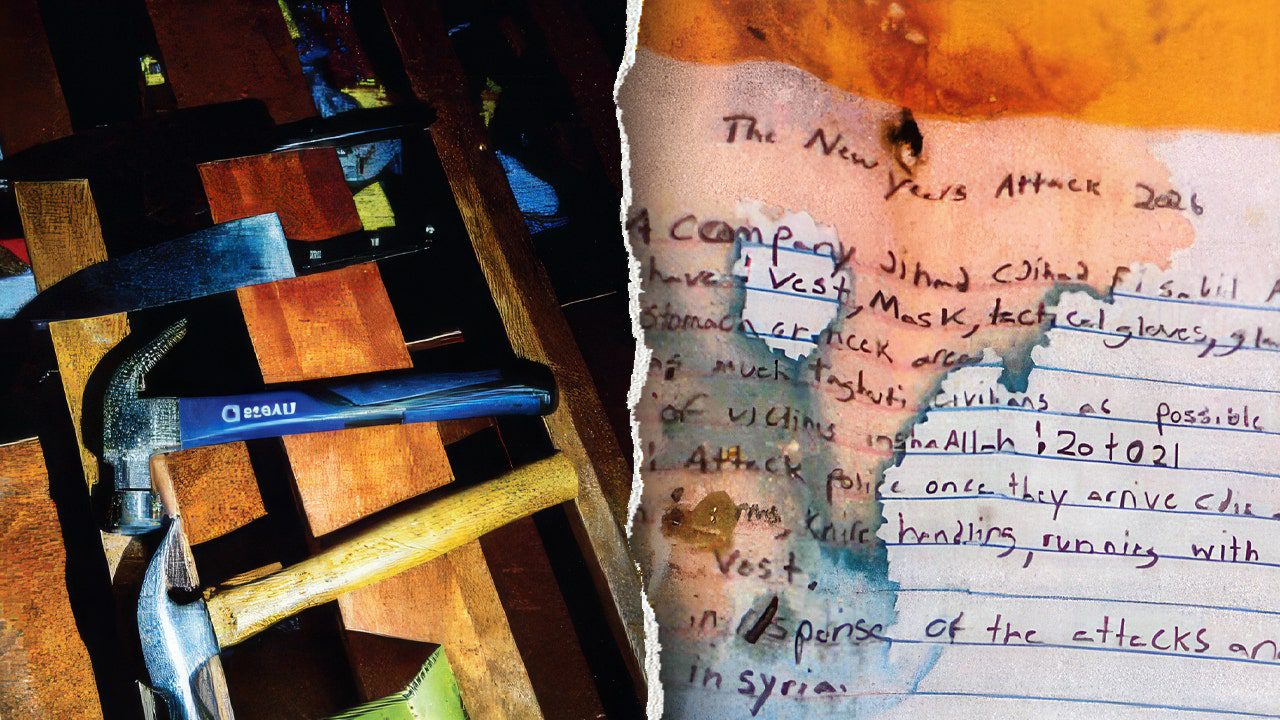 The New Years Attack 2026
A Company Jihad (Jihad fi sabil
have vest, Mask, tactical gloves,
stomach or neck area
much taghuti civilians as possible
of victims inshaAllah ! 20 to 21
Attack police once they arrive
knife handling, running with
Vest.
in response of the attacks
in syria.